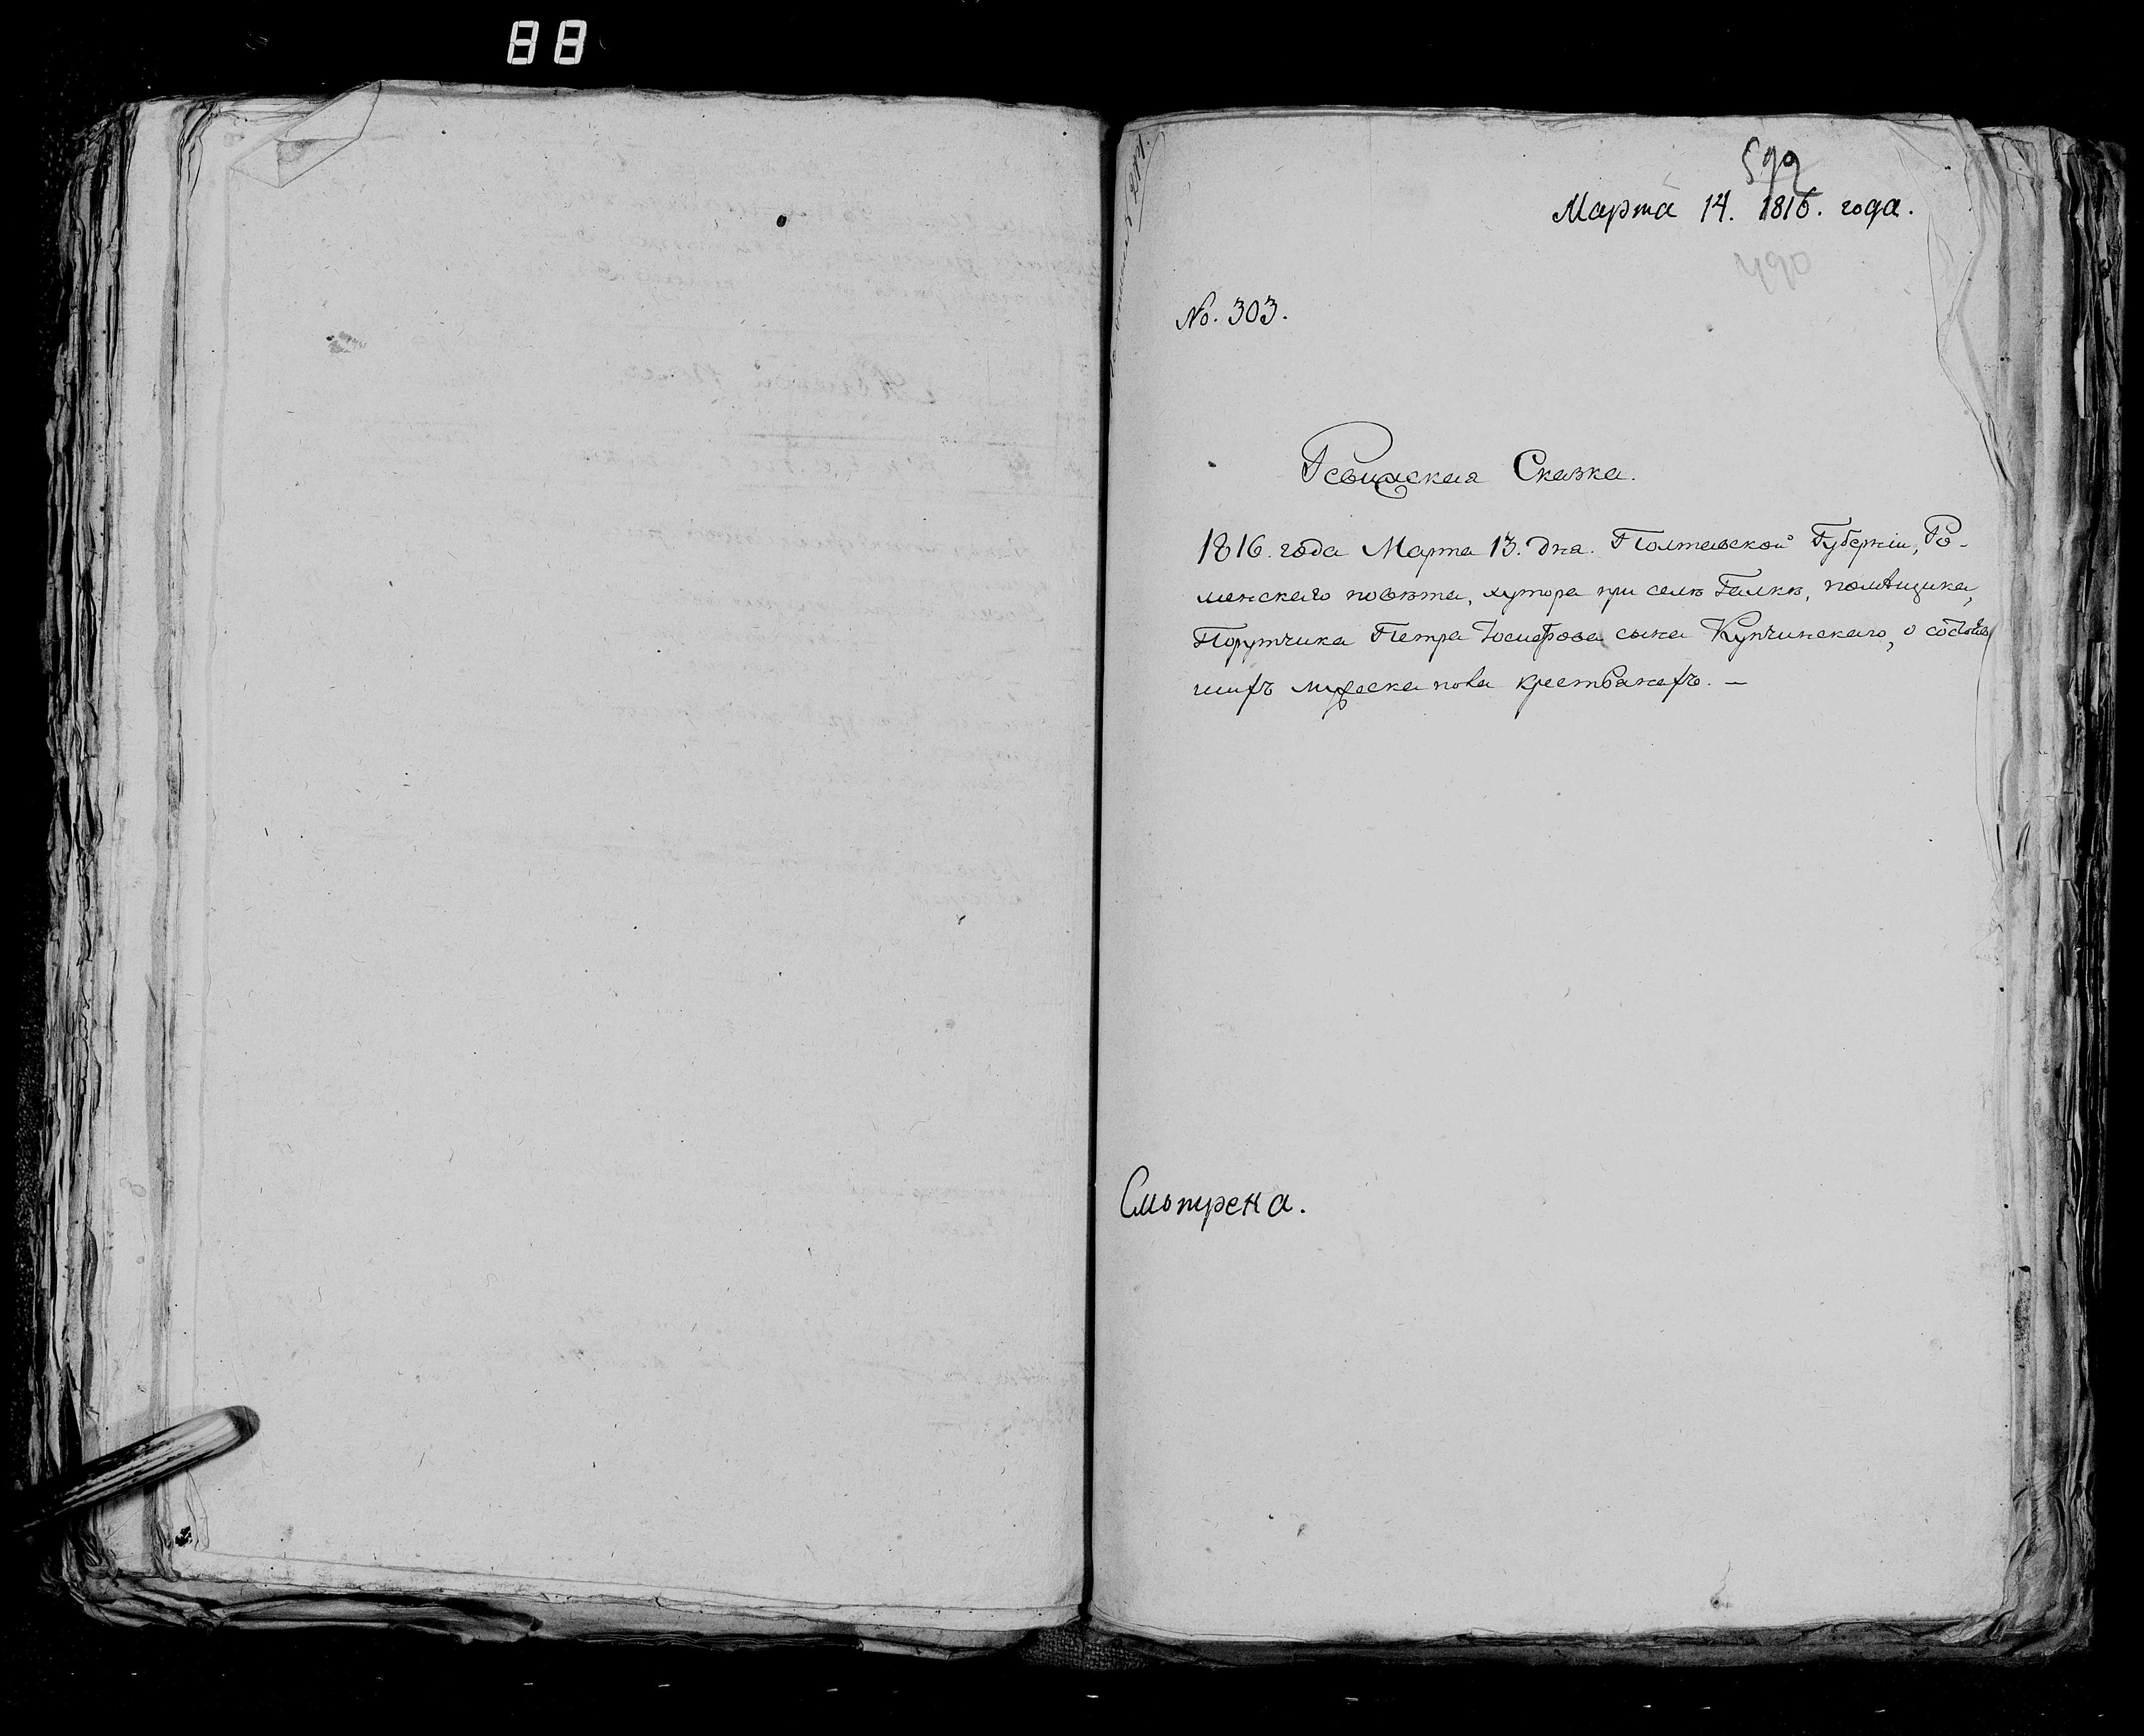 88
599
Марта 14. 1816. года.
490
No. 303.
Ревижская Сказка.
1816. года Марта 13. дня. Полтавской Губерніи, Ро-
менскаго повѣта, хутора при селѣ Галкѣ, помѣщика,
Порутчика Петра Іосифова сына Купчинскаго, о состояв
шихъ мужеска пола крестьянахъ. —
Смотрена.